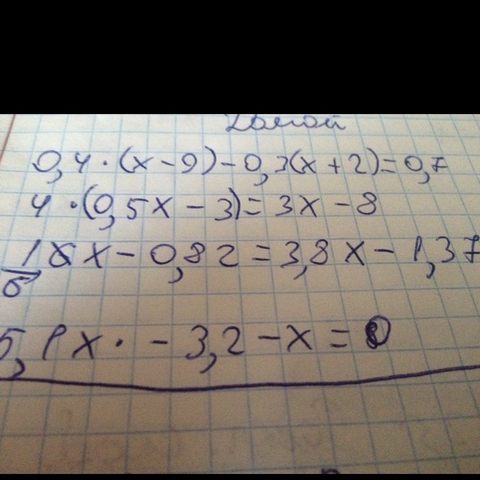 Домой
0,4·(x-9)-0,3(x+2)=0,7
4·(0,5x-3)=3x-8
x-0,82=3,8x-1,37
5,1x·-3,2-x=0